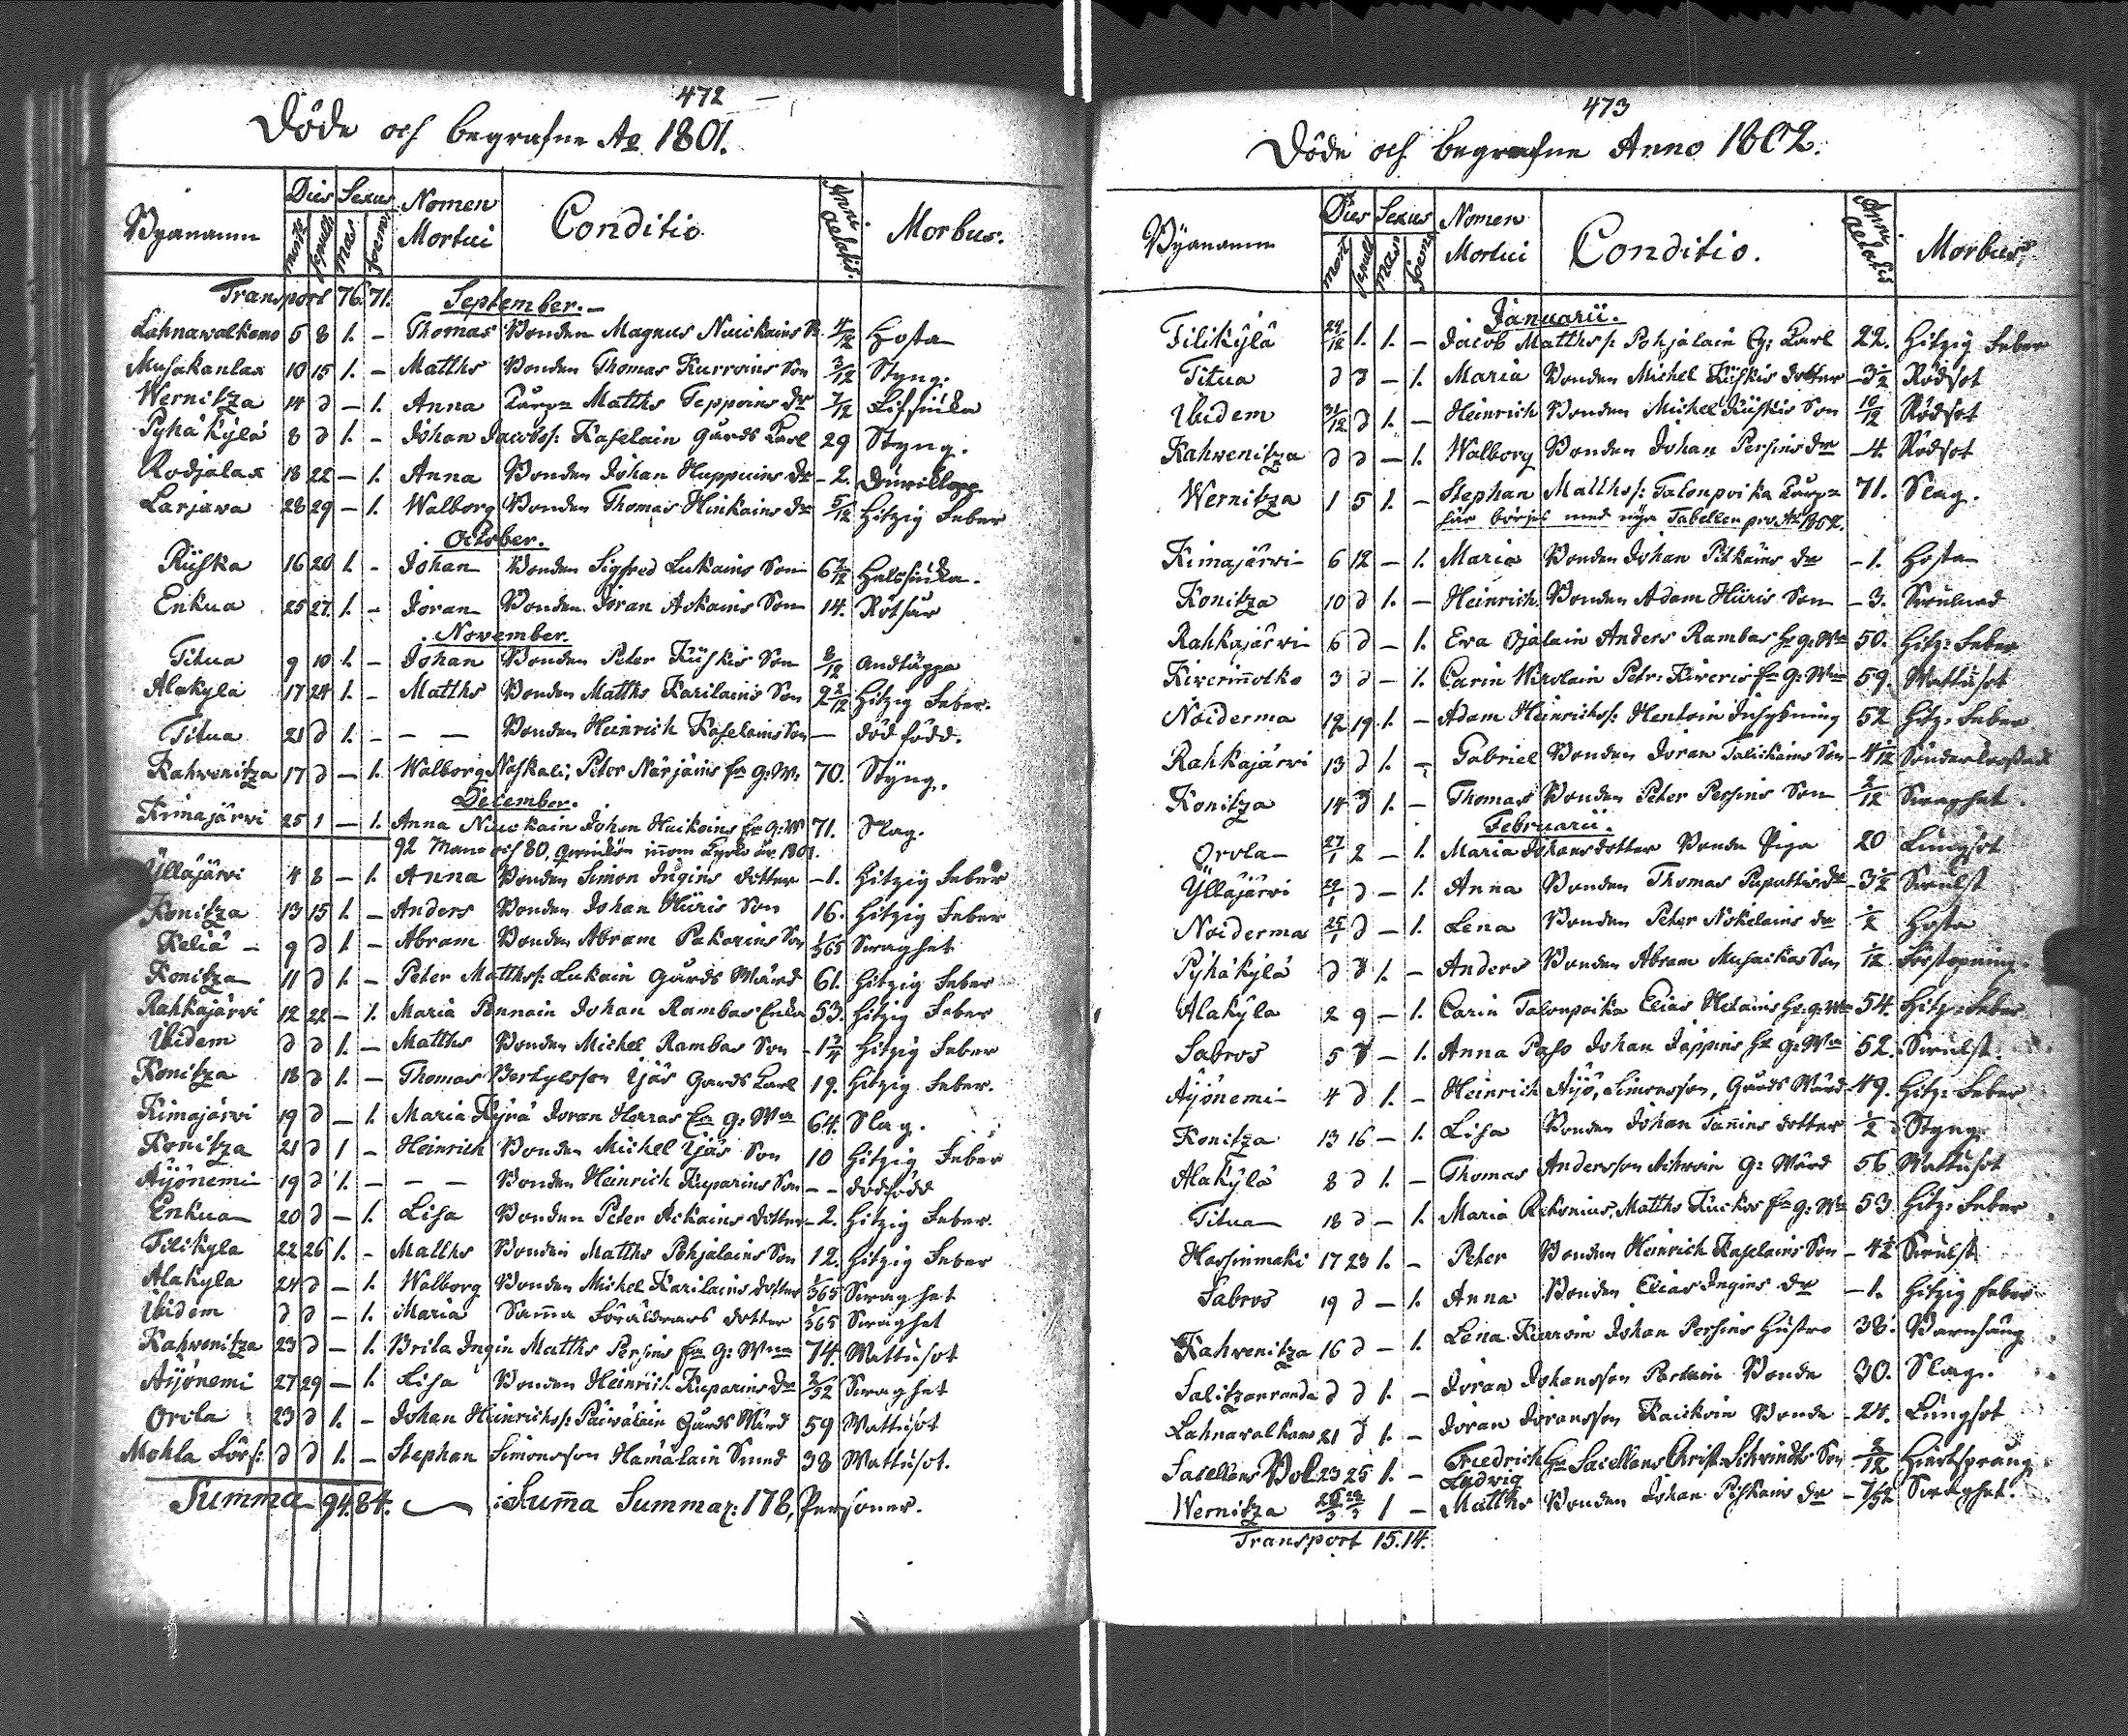 472
Döde och begrafne Ao 1801.
Byanamn Dies Sexus Nomen Mortui Conditio Anni aetatis. Morbus.
mort sepult mas foem.
Transport 76. 71. September.
Lahnawalkama 5 8 1. - Thomas Bonden Magnus Nuickains S. 4/12 Hosta
Musakanlax 10 15 1. - Matths Bonden Thomas Kurroins Son 3/12 Styng.
Wernitza 14 d - 1. Anna Matths Teppoins dr 7/12
Pyhäkylä 8 d 1. - Johan Jacobss: Kaselain Gårds Karl 29 Styng.
Rodjalax 18 22 - 1. Anna Bonden Johan Huppuins dr - 2.
Larjava 28 29 - 1. Walborg Bonden Thomas Hinkains dr 5/12 Hitzig Feber
October.
Kuska 16 20 1. - Johan Bonden Sigfred Lukains Son 6 Halssiuka.
Enkua 25 27. 1. - Joran Bonden Joran Ackains Son 14. Rötsår
November.
Titua 9 10 1. - Johan Bonden Peter Kiiskis Son 8/12 andtäppa
Alakylä 17 24 1. - Matths Bonden Matths Karilains Son 2 2/12 Hitzig Feber.
Titua 21 d 1. - - - Bonden Heinrich Kaselains Son - död född.
Kahvenitza 17 d - 1. Walborg Naskali, Peter Närjäins fr g: W: 70. Styng.
December.
Kimajärvi 25 1 - 1. Anna Nuickain Johan Huikoins fr g: W 71. Slag.
92 Man och 80. qwinkön inom Kyrko år 1801.
Ylläjärvi 4 8 - 1. Anna Bonden Simon Ingins dotter - 1. Hitzig Feber
Konitza 13 15 1. - Anders Bonden Johan Hiiris Son 16. Hitzig Feber
Keliä - 9 d 1 - Abram Bonden Abram Pakarins Son 1/365 Swaghet
Konitza 11 d 1. - Peter Matthss: Lukain Gårds Wärd 61. Hitzig Feber
Rahkajärvi 12 22 - 1. Maria Pennain Johan Rambas Enka 53. Hitzig Feber
Ibidem d d 1. - Matths Bonden Michel Rambas Son - 1 3/4 Hitzig Feber
Konitza 18 d 1. - Thomas Bertylsson Ijäs Gårds Karl 19. Hitzig Feber.
Kimajärvi 19 d - 1. Maria Kyrä Joran Herras Ea g: Wa 64. Slag.
Konitza 21 d 1 - Heinrich Bonden Michel Ijäs Son 10 Hitzig Feber
Äyönemi 19 d 1. - - - Bonden Heinrich Kuparins Son - - dödfödd
Enkua 20 d - 1. Lisa Bonden Peter Ackains dotter - 2. Hitzig Feber.
Tilikyla 22 26 1. - Matths Bonden Matths Pohjalains Son 12. Hitzig Feber
Alakyla 24 d - 1. Walborg Bonden Michel Karilains dotter 1/365 Swaghet
Ibidem d d - 1. Maria Samma Föräldrars dotter 1/365 Swaghet
Kahvenitza 23 d - 1. Brita Ingin Matths Persins fr g: Wna 74. Wattusot
Äyönemi 27 29 - 1. Lisa Bonden Heinrich Kuparins dr 2/52 Swaghet
Orola 23 d 1. - Johan Heinrichss: Päiväläin Gårds Wärd 59 Wattusot
Mohla Förs: d d 1. - Stephan Simonsson Hämäläin Smed 38 Wattusot.
Summa 94. 84. Summa Summar: 178, Personer.
473
Döde och begrafne Anno 1802.
Byanamn Dies Sexus Nomen Mortui Conditio. Anni aetatis Morbus.
mort sepult mas foem
Januarii.
Tilikylä 29/12 1. 1. - Jacob Matthss: Pohjalain G: Karl 22. Hitzig Feber
Titua d d - 1. Maria Bonden Michel Kiiskis dotter - 3 1/2 Rödsot
Ibidem 31/12 d 1. - Heinrich Bonden Michel Kiiskis Son 10/12 Rödsot
Kahvenitza d d - 1. Walborg Bonden Johan Persins dr - 4. Rödsot
Wernitza 1 5 1. - Stephan Matthss: Talonpoika 71. Slag.
här börjes med nya Tabellen pro Ao 1802.
Kimajärvi 6 12 - 1. Maria Bonden Johan Pitkäins dr - 1. Hosta
Konitza 10 d 1. - Heinrich Bonden Adam Hiiris Son - 3.
Rahkajärvi 6 d - 1. Ewa Ojalain Anders Rambas fr g: Wa 50. Hitz: Feber
Kiverinotko 3 d - 1. Carin Wirolain Petr: Kiveris fr g: Wna 59. Wattusot
Noiderma 12 19. 1. - Adam Heinrichss: Hentoin 52 Hitz: Feber
Rahkajärvi 13 d 1. - Gabriel Bonden Joran Talickains Son - 4
Konitza 14 d 1. - Thomas Bonden Peter Persins Son 2/12 Swaghet.
Februarii.
Orola 27/1 2 - 1. Maria Johansdotter Bonde Piga 20 Lungsot
Ylläjärvi 29/1 d - 1. Anna Bonden Thomas Paputtis dr - 3 1/2 Swulst
Noiderma 25/1 d - 1. Lena Bonden Peter Nokelains dr 1/2 Hosta
Pyhäkylä d d 1. - Anders Bonden Abram Musackas Son 1/12 Förstopning.
Alakyla 2 9 - 1. Carin Talonpoika Elias Helains fr: g: Wa 54. Hitz: Feber
Sabros 5 d - 1. Anna Paso Johan Jäppins fr g: Wa 52. Swulst.
Äyönemi 4 d 1. - Heinrich Äyö, Simonsson, Gårds Wärd 49. Hitz: Feber
Konitza 13 16 - 1. Lisa Bonden Johan Tanins dotter 1/2 Styng
Alakylä 8 d 1. - Thomas Andersson g: Wärd 56 Wattusot
Titua 18 d - 1. Maria Matths Kuckos fr g: Wa 53 Hitz: Feber
Hassinmaki 17 23 1. - Peter Bonden Heinrich Kaselains Son - 4 1/2 Swulst
Sabros 19 d - 1. Anna Bonden Elias Ingins dr - 1. Hitzig feber
Kahvenitza 16 d - 1. Lena Kurroin Johan Persins Hustro 38. Barnsäng
Salitzanranda d d 1. - Joran Johansson Partain Bonde 30. Slag.
Lahnavalkama 21 d 1. - Joran Joransson Kaickoin Bonde - 24. Lungsot
Sacellans Bol 23 25 1. - Friedrich Ludvig Hr Sacellans Christ. Schvindts Son 2/12
Wernitza 1 - Matths Bonden Johan Piskains dr - 7/52 Swaghet.
Transport 15. 14.